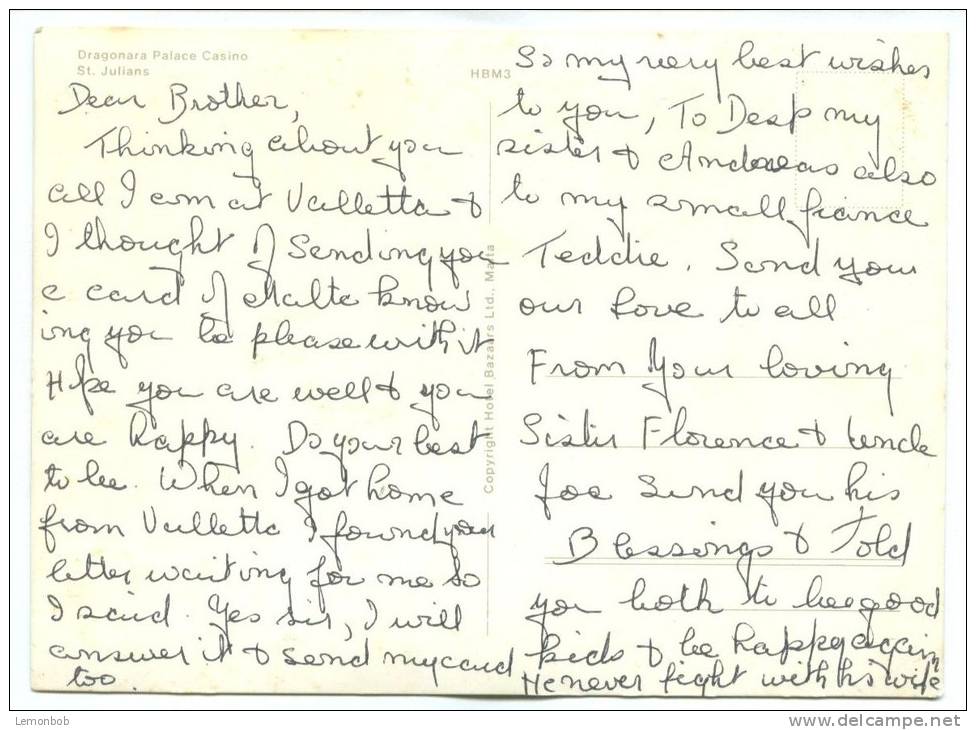 Dragonara Palace Casino
St. Julians
HBM3
Dear Brother,
Thinking about you
all I am at Valletta &
I thought of sending you
a card of Malta know
ing you to please with it
Hope you are well & you
are happy. Do your best
to be. When I got home
from Valletta I found your
letter waiting for me so
I said. Yes sir, I will
answer it & send my card
too.
Copyright Hotel Bazaars Ltd., Malta
So my very best wishes
to you, To Desp my
sister & Andreas also
to my small fiance
Teddie. Send you
our love to all
From Your loving
Sister Florence & Uncle
Joe Send you his
Blessings & Told
you both to be good
kids & be happy again
He never fight with his wife
Lemonbob
www.delcampe.net